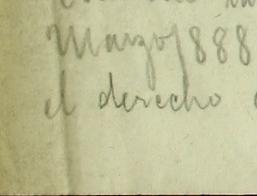 Marzo/888
el derecho